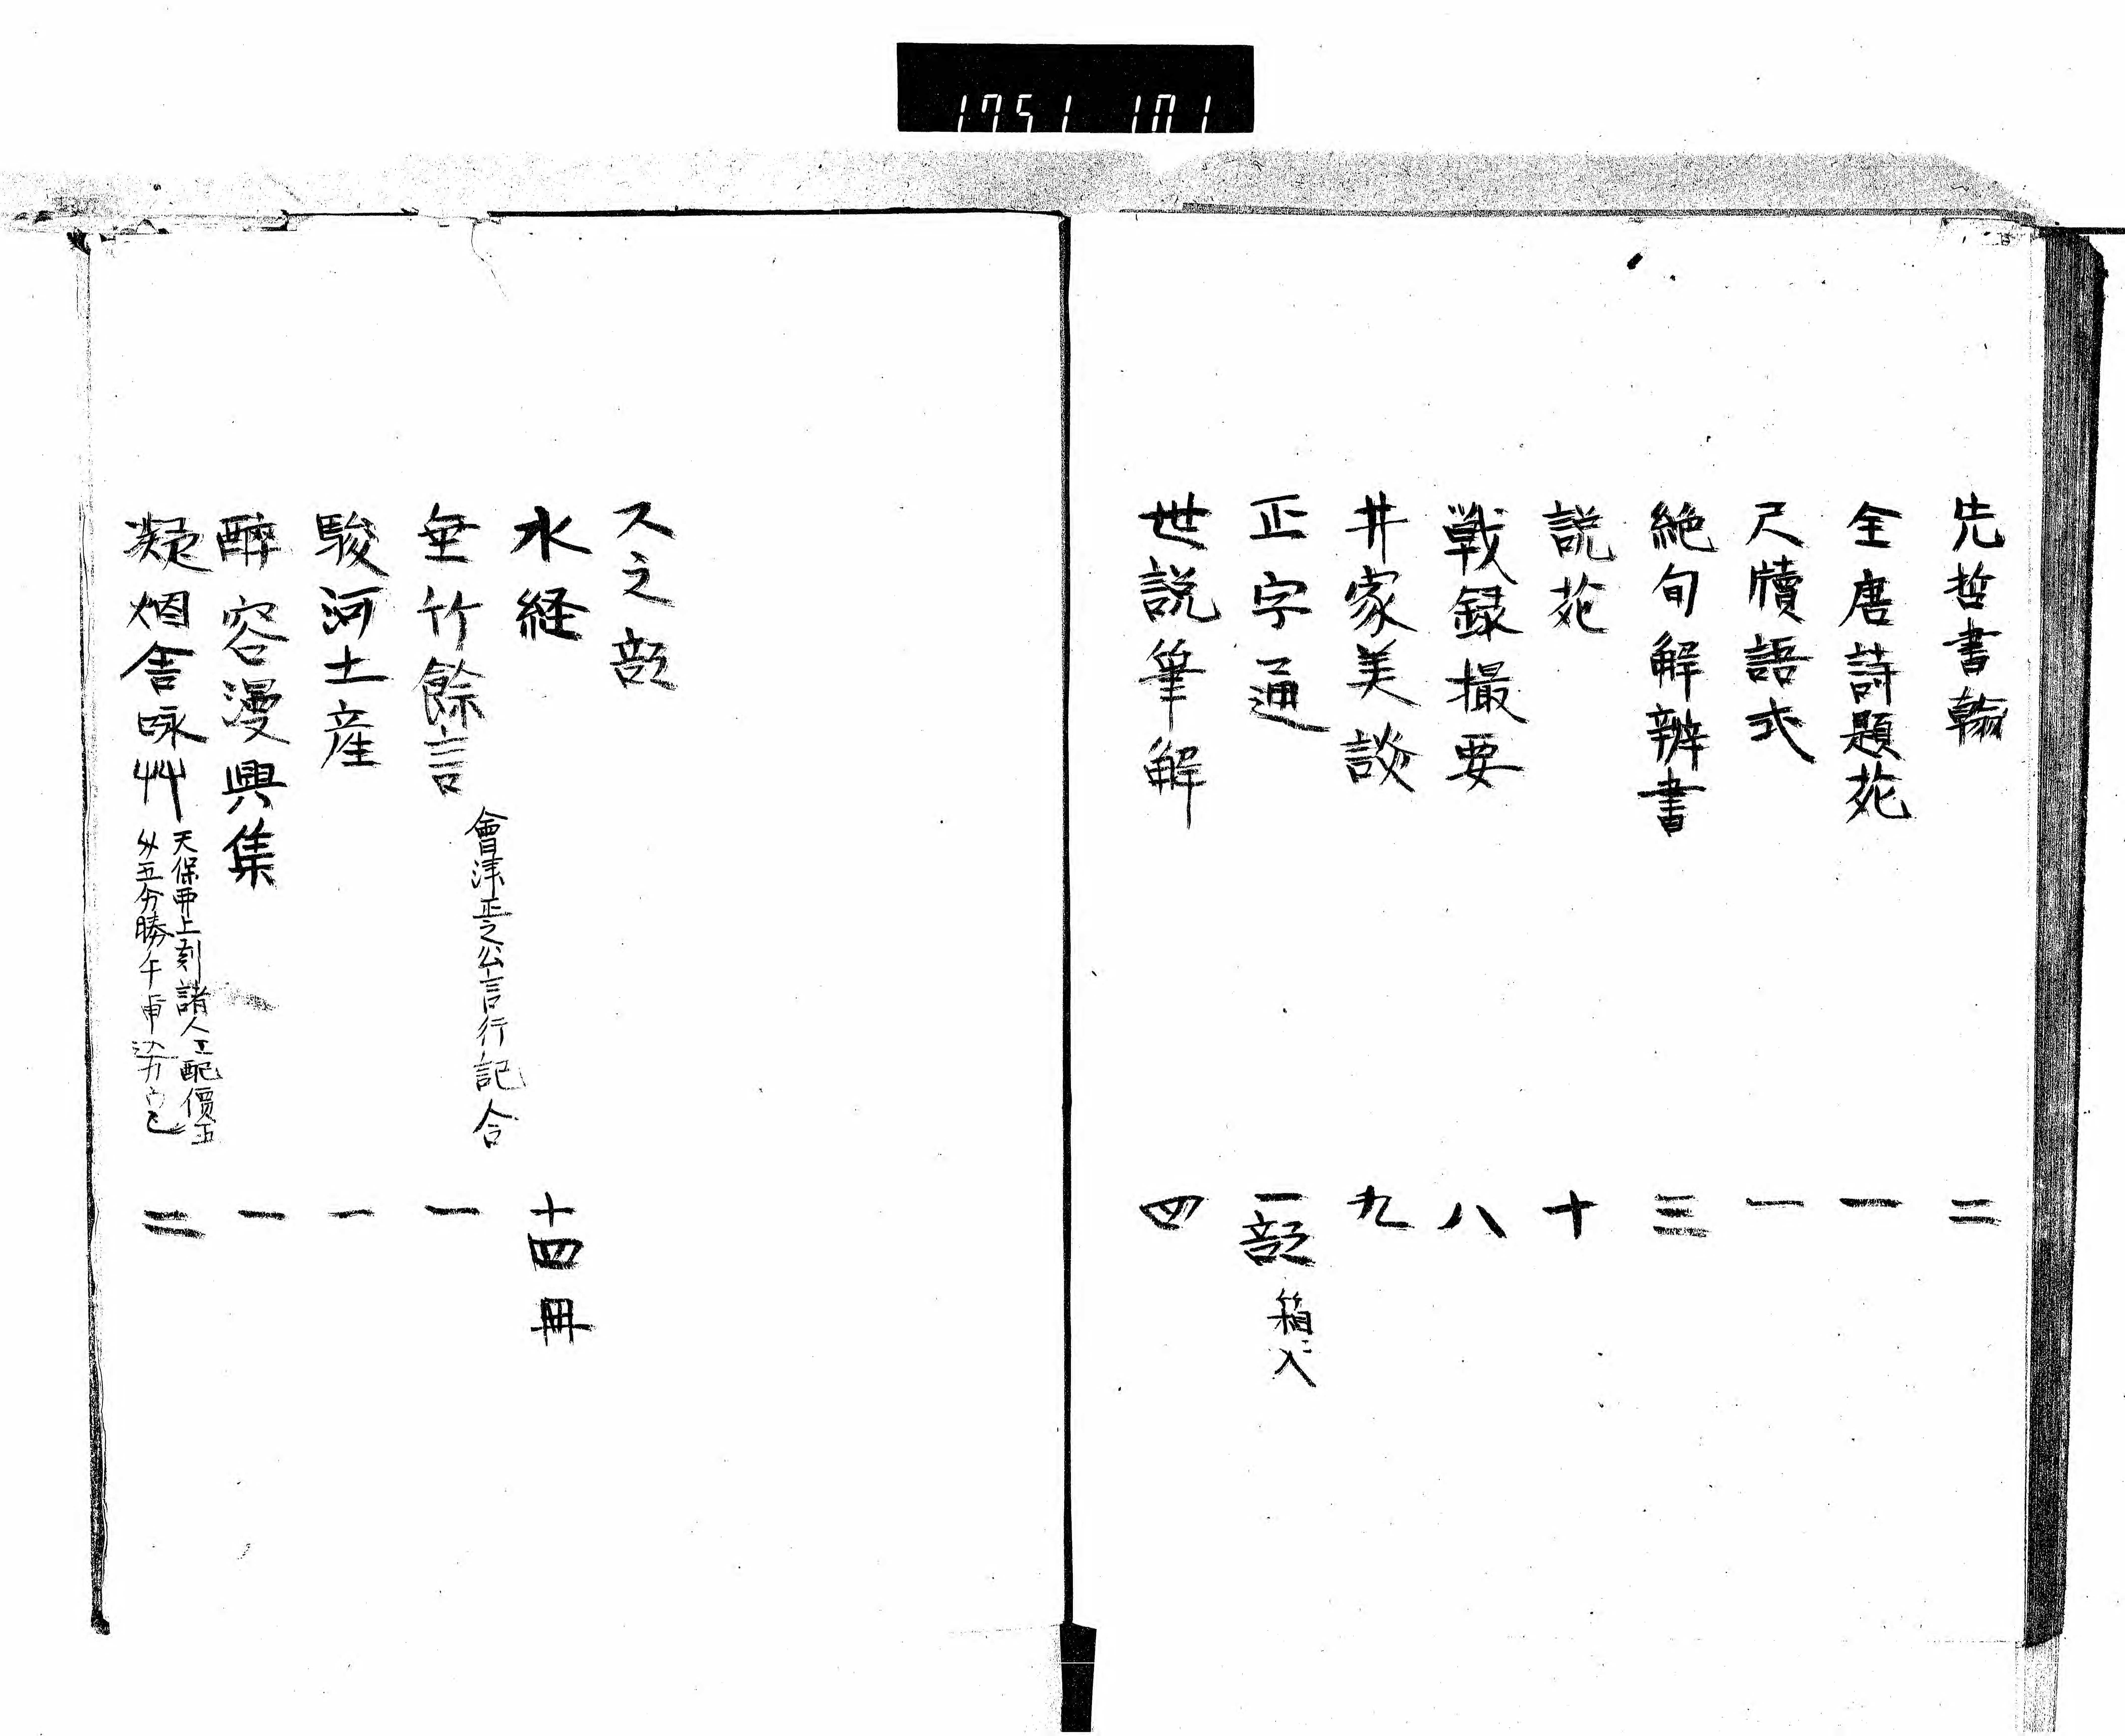 1751 101
先哲書翰 二
全唐詩題苑 一
尺牘語式 一
絶句解辨書 三
説苑 十
戦録撮要 八
井家美談 九
正字通 一部 箱入
世説筆解 四
ス之部
水経 十四冊
垂竹餘言 會津正之公言行記合 一
駿河土産 一
酔容漫興集 一
凝烟舎咏艸 二
天保 上刻諸人工配價